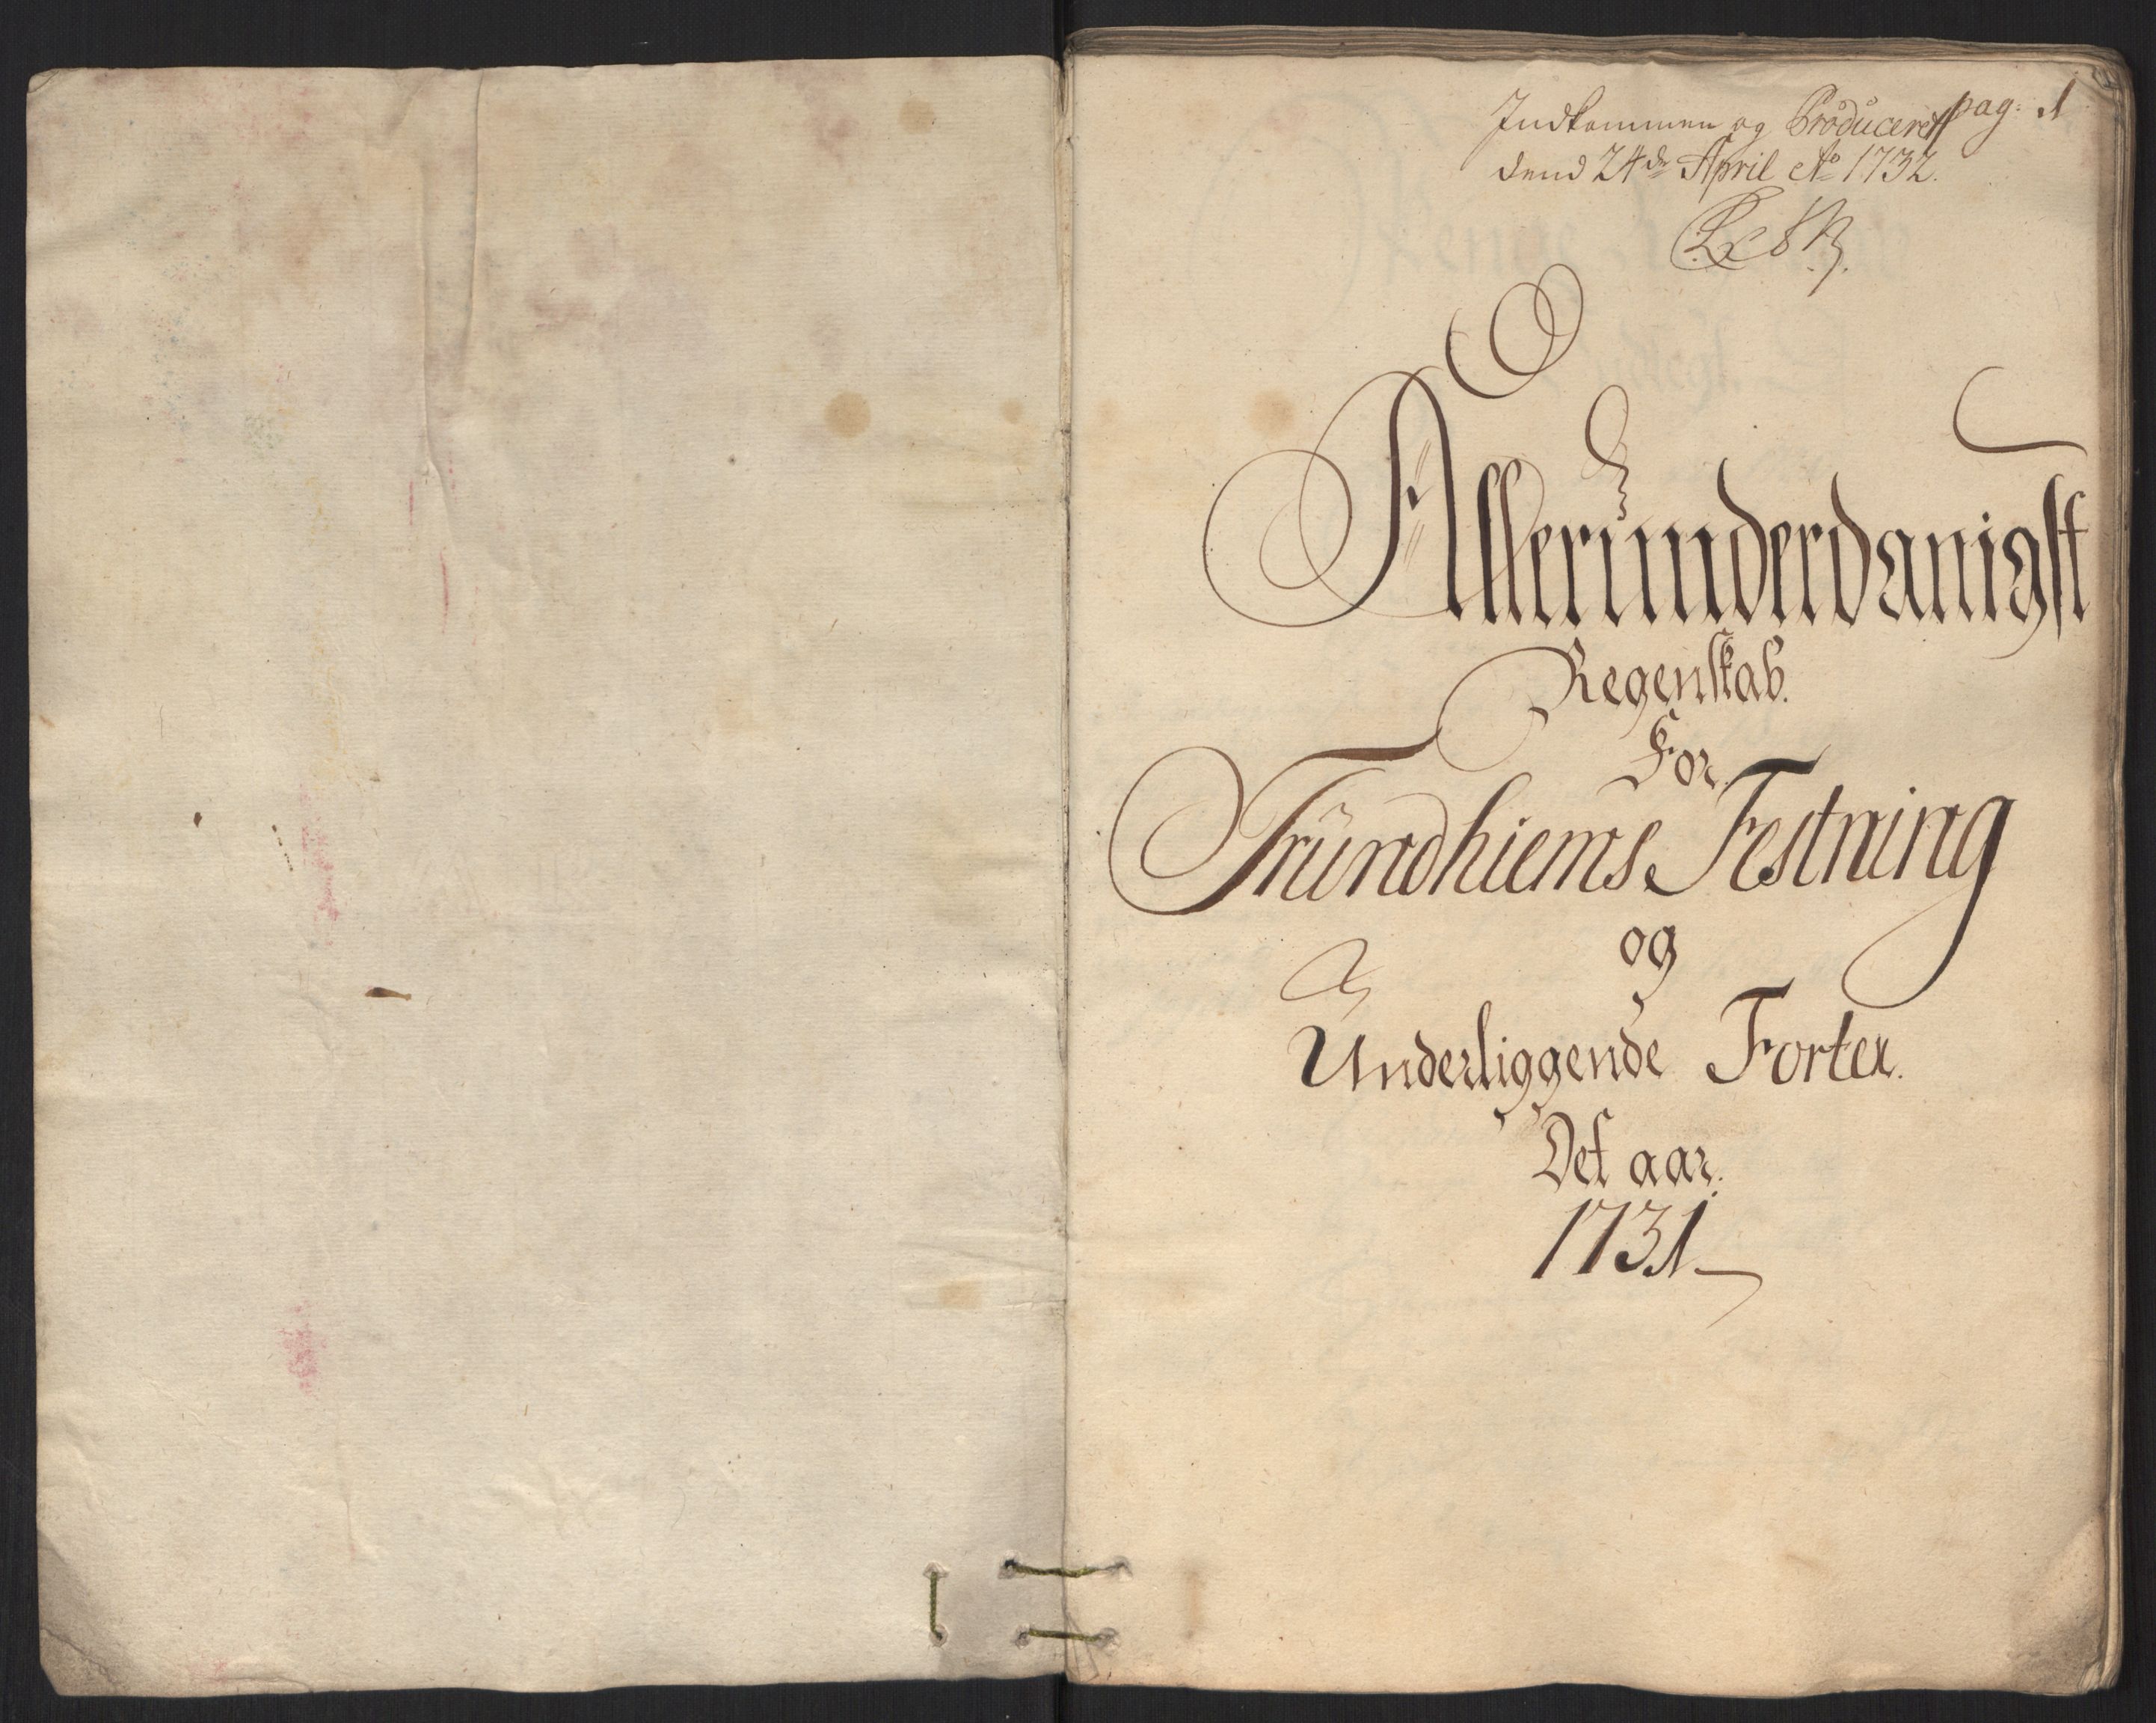 pag: 1
Indkommen og Produceret
dend 24de April Ao 1732.
Allerunderdanigst
Regenskab.
For
Trundhiems Festning
og
Underliggende Forter.
Det aar.
1731